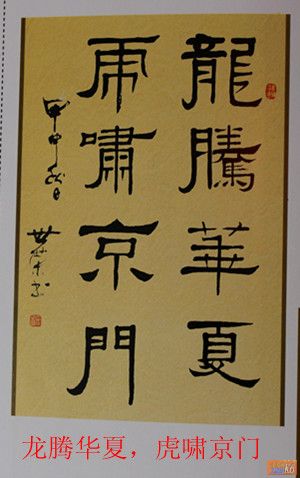 龍騰華夏
虎嘯京門
甲申秋日
龙腾华夏，虎啸京门